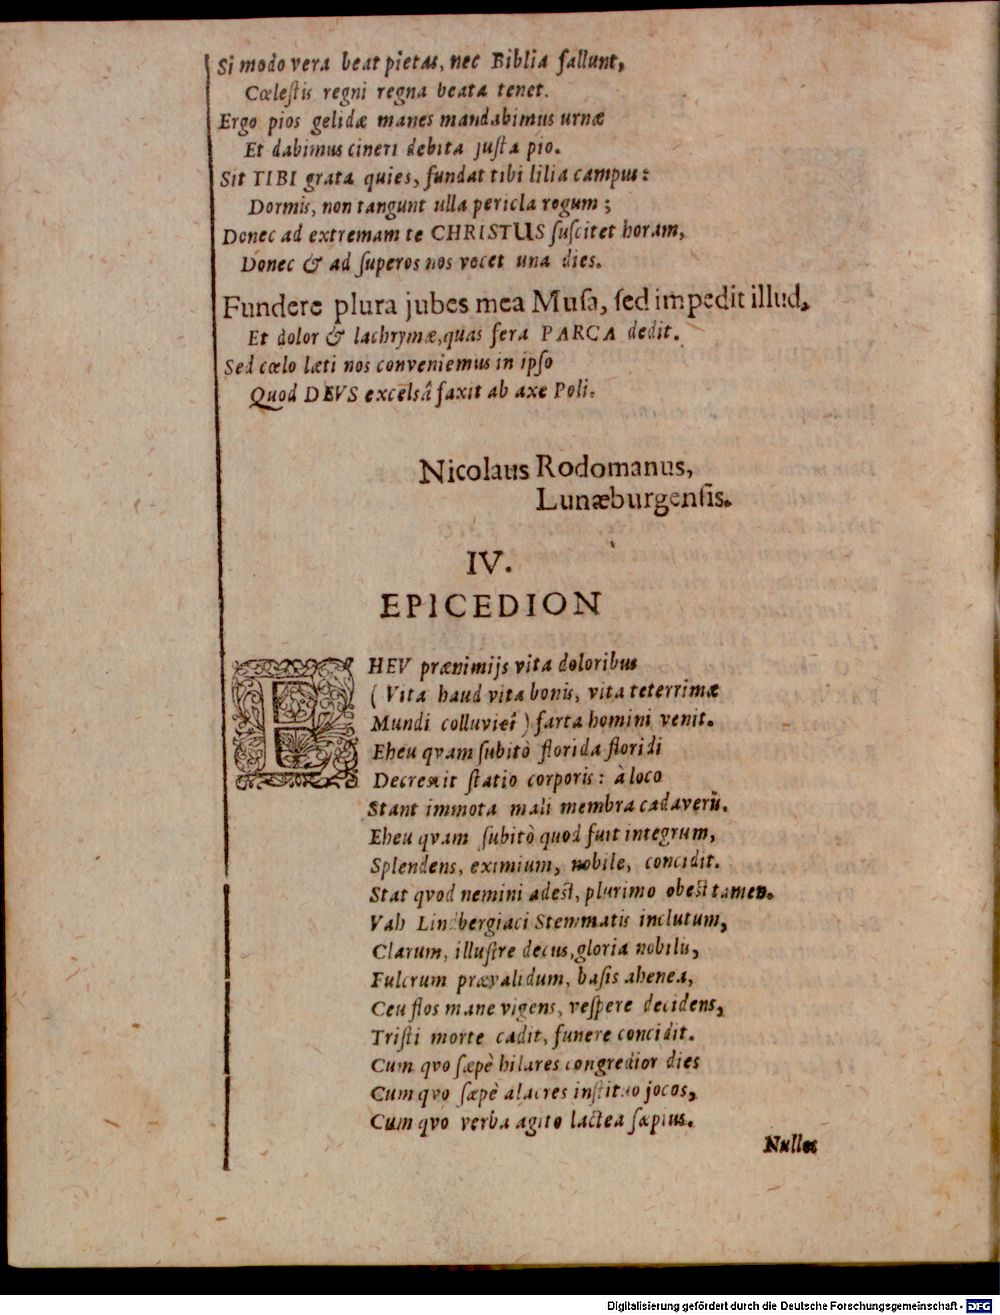 Si modo vera beat pietas, nec Biblia fallunt,
Cœleſtis regni regna beata tenet.
Ergo pios gelidæ manes mandabimus urnæ
Et dabimus cineri debita juſta pio.
Sit TIBI grata quies, fundat tibi lilia campus:
Dormis, non tangunt ulla pericla rogum;
Donec ad extremam te CHRISTUS ſuſcitet horam,
Donec & ad ſuperos nos vocet una dies.
Fundere plura jubes mea Muſa, ſed impedit illud,
Et dolor & lachrymæ, quas fera PARCA dedit.
Sed cœlo læti nos conveniemus in ipſo
Quod DEVS excelsâ faxit ab axe Poli.
Nicolaus Rodomanus,
Lunæburgenſis.
IV.
EPICEDION
EHEV prænimijs vita doloribus
(Vita haud vita bonis, vita teterrimæ
Mundi colluviei) farta homini venit.
Eheu qvam ſubitò florida floridi
Decrevit ſtatio corporis: à loco
Stant immota mali membra cadaverū.
Eheu qvam ſubitò quod fuit integrum,
Splendens, eximium, nobile, concidit.
Stat qvod nemini adeſt, plurimo obeſt tamen.
Vah Lindbergiaci Stemmatis inclutum,
Clarum, illuſtre decus, gloria nobilis,
Fulcrum prævalidum, baſis ahenea,
Ceu flos mane vigens, veſpere decidens,
Triſti morte cadit, funere concidit.
Cum qvo ſæpè hilares congredior dies
Cum qvo ſæpè alacres inſtituo jocos,
Cum qvo verba agito lactea ſæpius.
Nullos
Digitalisierung gefördert durch die Deutsche Forschungsgemeinschaft - DFG